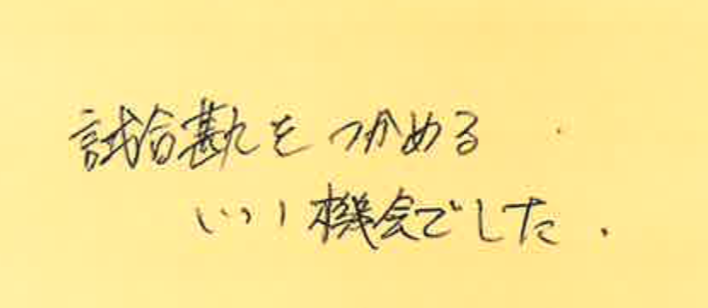 試合勘をつかめる
いい機会でした.